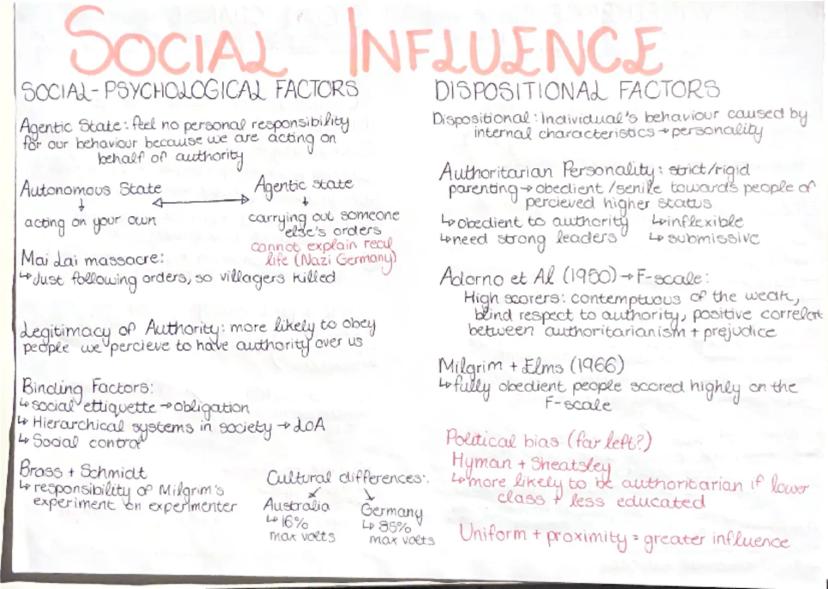 SOCIAL INFLUENCE
SOCIAL-PSYCHOLOGICAL FACTORS
Agentic State: feel no personal responsibility
for our behaviour because we are acting on
behalf of authority
Autonomous State
↓
acting on your own
Agentic state
↓
carrying out someone
else's orders
cannot explain real
life (Nazi Germany)
Mai Lai massacre:
↳Just following orders, so villagers killed
Legitimacy of Authority: more likely to obey
people we percieve to have authority over us
Binding Factors:
↳social ettiquette → obligation
↳Hierarchical systems in society → LOA
↳Social control
Brass + Schmidt
↳responsibility of Milgrim's
experiment on experimenter
Cultural differences:
Australia
↳16%
max volts
Germany
↳85%
max volts
DISPOSITIONAL FACTORS
Dispositional: Individual's behaviour caused by
internal characteristics → personality
Authoritarian Personality: strict/rigid
parenting → obedient/senile towards people of
percieved higher status
↳obedient to authority ↳inflexible
↳need strong leaders ↳submissive
Adorno et Al (1950) → F-scale:
High scorers: contemptuous of the weak,
blind respect to authority, positive correlat
between authoritarianism + prejudice
Milgrim + Elms (1966)
↳fully obedient people scored highly on the
F-scale
Political bias (far left?)
Hyman + Sheatsley
↳more likely to be authoritarian if lower
class + less educated
Uniform + proximity = greater influence